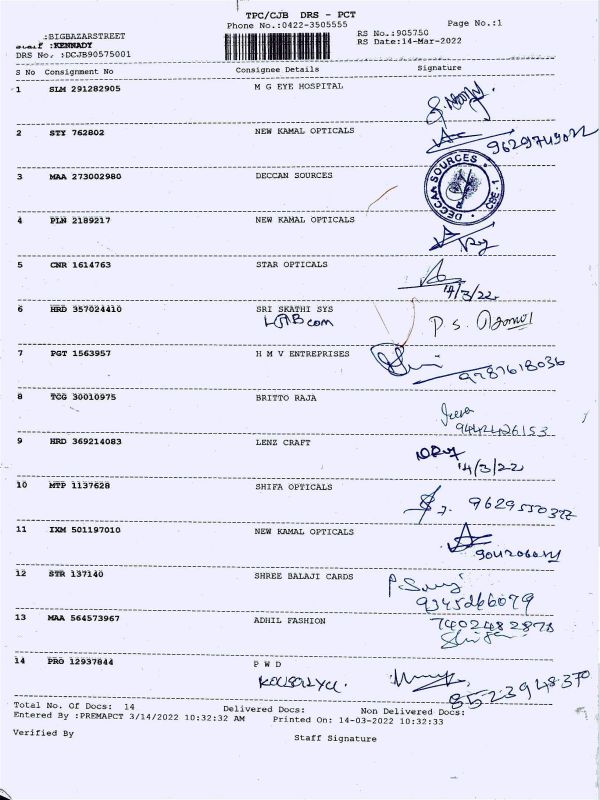 TPC/CJB DRS - PCT
Phone No.:0422-3505555 Page No.:1
:BIGBAZARSTREET RS No.:905750
Staff :KENNADY RS Date:14-Mar-2022
DRS No. :DCJB90575001
S No Consignment No Consignee Details Signature
1 SLM 291282905 M G EYE HOSPITAL
2 STY 762802 NEW KAMAL OPTICALS
3 MAA 273002980 DECCAN SOURCES
DECCAN SOURCES CBE-1
4 PLN 2189217 NEW KAMAL OPTICALS
5 CNR 1614763 STAR OPTICALS
14/3/22
6 HRD 357024410 SRI SKATHI SYS
P. S.
7 PGT 1563957 H M V ENTREPRISES
9787618036
8 TCG 30010975 BRITTO RAJA
9442426153
9 HRD 369214083 LENZ CRAFT
14/3/22
10 MTP 1137628 SHIFA OPTICALS
11 IXM 501197010 NEW KAMAL OPTICALS
12 STR 137140 SHREE BALAJI CARDS
9345266079
13 MAA 564573967 ADHIL FASHION
7402482878
14 PRO 12937844 P W D
8523948370
Total No. Of Docs: 14 Delivered Docs: Non Delivered Docs:
Entered By :PREMAPCT 3/14/2022 10:32:32 AM Printed On: 14-03-2022 10:32:33
Verified By Staff Signature